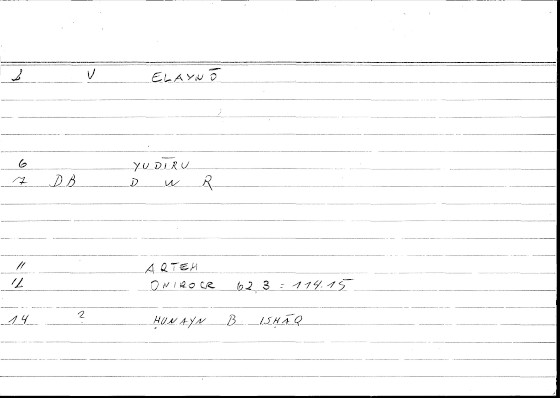 1 V ELAYNŌ
6 YUDĪRU
7 DB D W R
11 ARTEM
12 ONIROCR 62.3 : 114.15
14 2 ḤUNAYN B ISḤĀQ